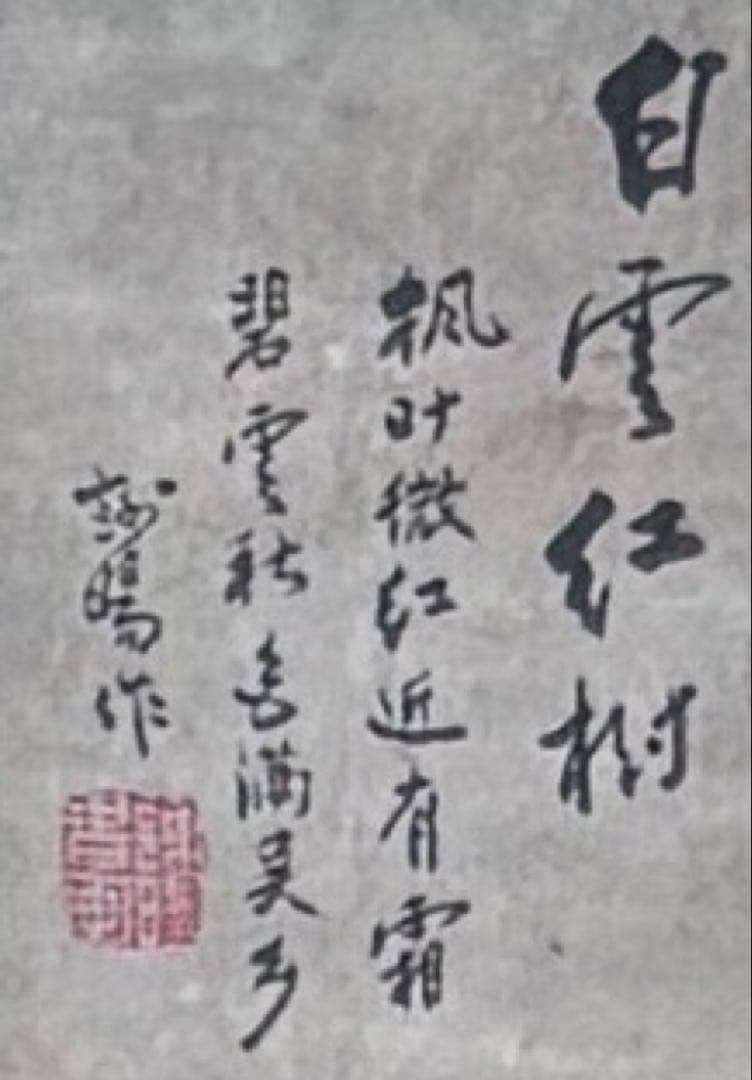 白雲红樹
枫叶微红近有霜
碧雲秋色满吴乡
作